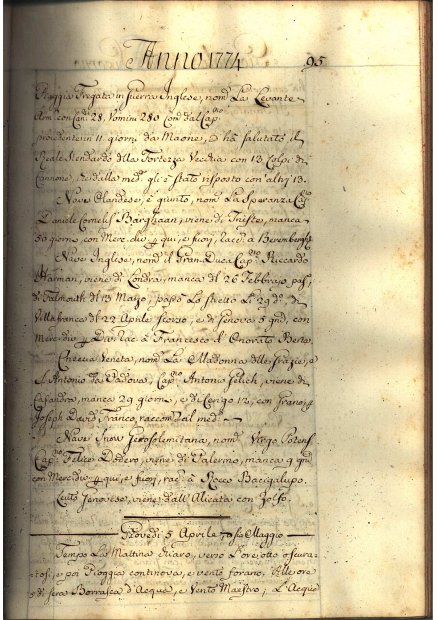 Anno 1774 95
Reggia Fregata in Guerra Inglese, nom.ta La Levante
Arm. con Can. 28, Uomini 280 Com.a dal Cap.no
procedente in 11 giorni da Maone, e hà salutato il
Reale Stendardo della Fortezza Vecchia con 13 Colpi di
Cannone, e dalla med.a gli è stato risposto con altri 13.
Nave Olandese, è giunto, nom.ta La Speranza Cap.no
Daniele Cornelis Barghaan, viene di Trieste, manca
53 giorni, con Merc.die p qui, e fuori, racc. à Berenberg
Nave Inglese, nom.ta il Gran-Duca Cap.no Riccardo
Harman, viene di Londra, manca dal 26 Febbrajo, pas.
di Falmouth dl 13 Marzo, passò Lo stretto L. 29 d.o di
Villafranca dl 22 Aprile scorso, e di Genova 5 gni, con
Mercedie p Da Rac. à Francesco d'Onorato Berte.
Checcia Veneta, nom.ta La Madonna delle Grazie, e
S. Antonio da Padova, Cap.no Antonio Gelich, viene di
Casandra, manca 29 giorni, e di Cerigo 12, con Grano, à
Joseph David Franco, raccom. al med.o
Nave Snow Gerosolemitana, nom.ta Virgo Potens
Cap.no Felice Dodero, viene di Palermo, manca 9 gni
con Mercedie p qui, e fuori, rac. à Rocco Bacigalupo.
Leuto Genovese, viene dall'Alicata con Zolfo.
Giovedì 5 Aprile Maggio
Tempo La Mattina chiaro, verso L'ore otto oscura-
tosi, e poi Pioggia continova, e vento forano, Alle ore
5 di sera Borrasca d'Acqua, e Vento Maestro; L'Acqua